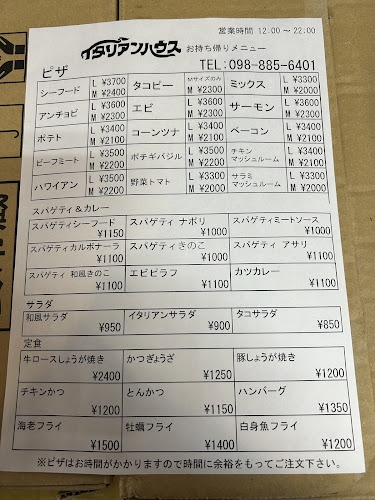 営業時間 12:00～22:00
イタリアンハウス お持ち帰りメニュー
TEL:098-885-6401
ピザ
シーフード L ¥3700 M ¥2400 タコピー Mサイズのみ M ¥2300 ミックス L ¥3300 M ¥2000
アンチョビ L ¥3600 M ¥2300 エビ L ¥3600 M ¥2300 サーモン L ¥3600 M ¥2300
ポテト L ¥3400 M ¥2100 コーンツナ L ¥3400 M ¥2100 ベーコン L ¥3400 M ¥2100
ビーフミート L ¥3500 M ¥2200 ポテギバジル L ¥3500 M ¥2200 チキンマッシュルーム L ¥3400 M ¥2100
ハワイアン L ¥3500 M ¥2200 野菜トマト L ¥3300 M ¥2000 サラミマッシュルーム L ¥3300 M ¥2000
スパゲティ＆カレー
スパゲティシーフード ¥1150 スパゲティ ナポリ ¥1000 スパゲティミートソース ¥1000
スパゲティカルボナーラ ¥1100 スパゲティきのこ ¥1000 スパゲティ アサリ ¥1100
スパゲティ 和風きのこ ¥1100 エビピラフ ¥1100 カツカレー ¥1100
サラダ
和風サラダ ¥950 イタリアンサラダ ¥900 タコサラダ ¥850
定食
牛ロースしょうが焼き ¥2400 かつぎょうざ ¥1250 豚しょうが焼き ¥1200
チキンかつ ¥1200 とんかつ ¥1150 ハンバーグ ¥1350
海老フライ ¥1500 牡蠣フライ ¥1400 白身魚フライ ¥1200
※ピザはお時間がかかりますので時間に余裕をもってご注文下さい。